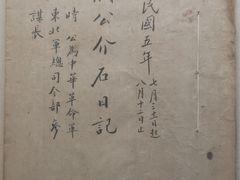 民國五年
七月三十一日起
八月十二日止
公介石日記
時公為中華革命軍
東北軍總司令部參
謀長